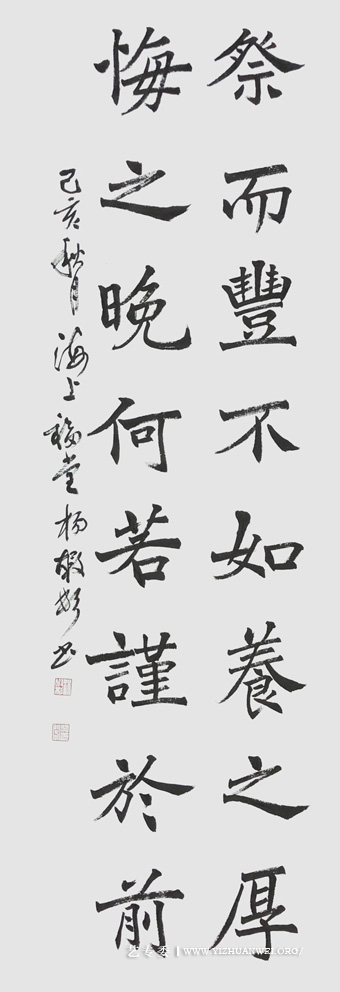 祭而豐不如養之厚
悔之晚何若謹於前
己亥秋月海上福堂杨毅彬书
艺专委 | WWW.YIZHUANWEI.ORG/